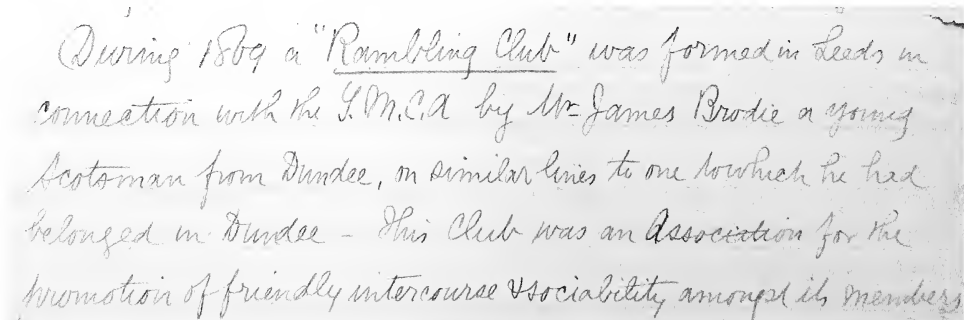 During 1869 a "Rambling Club" was formed in Leeds in
connection with the Y.M.C.A by Mr James Brodie a young
Scotsman from Dundee, on similar lines to one to which he had
belonged in Dundee - This Club was an Association for the
promotion of friendly intercourse & sociability amongst its members